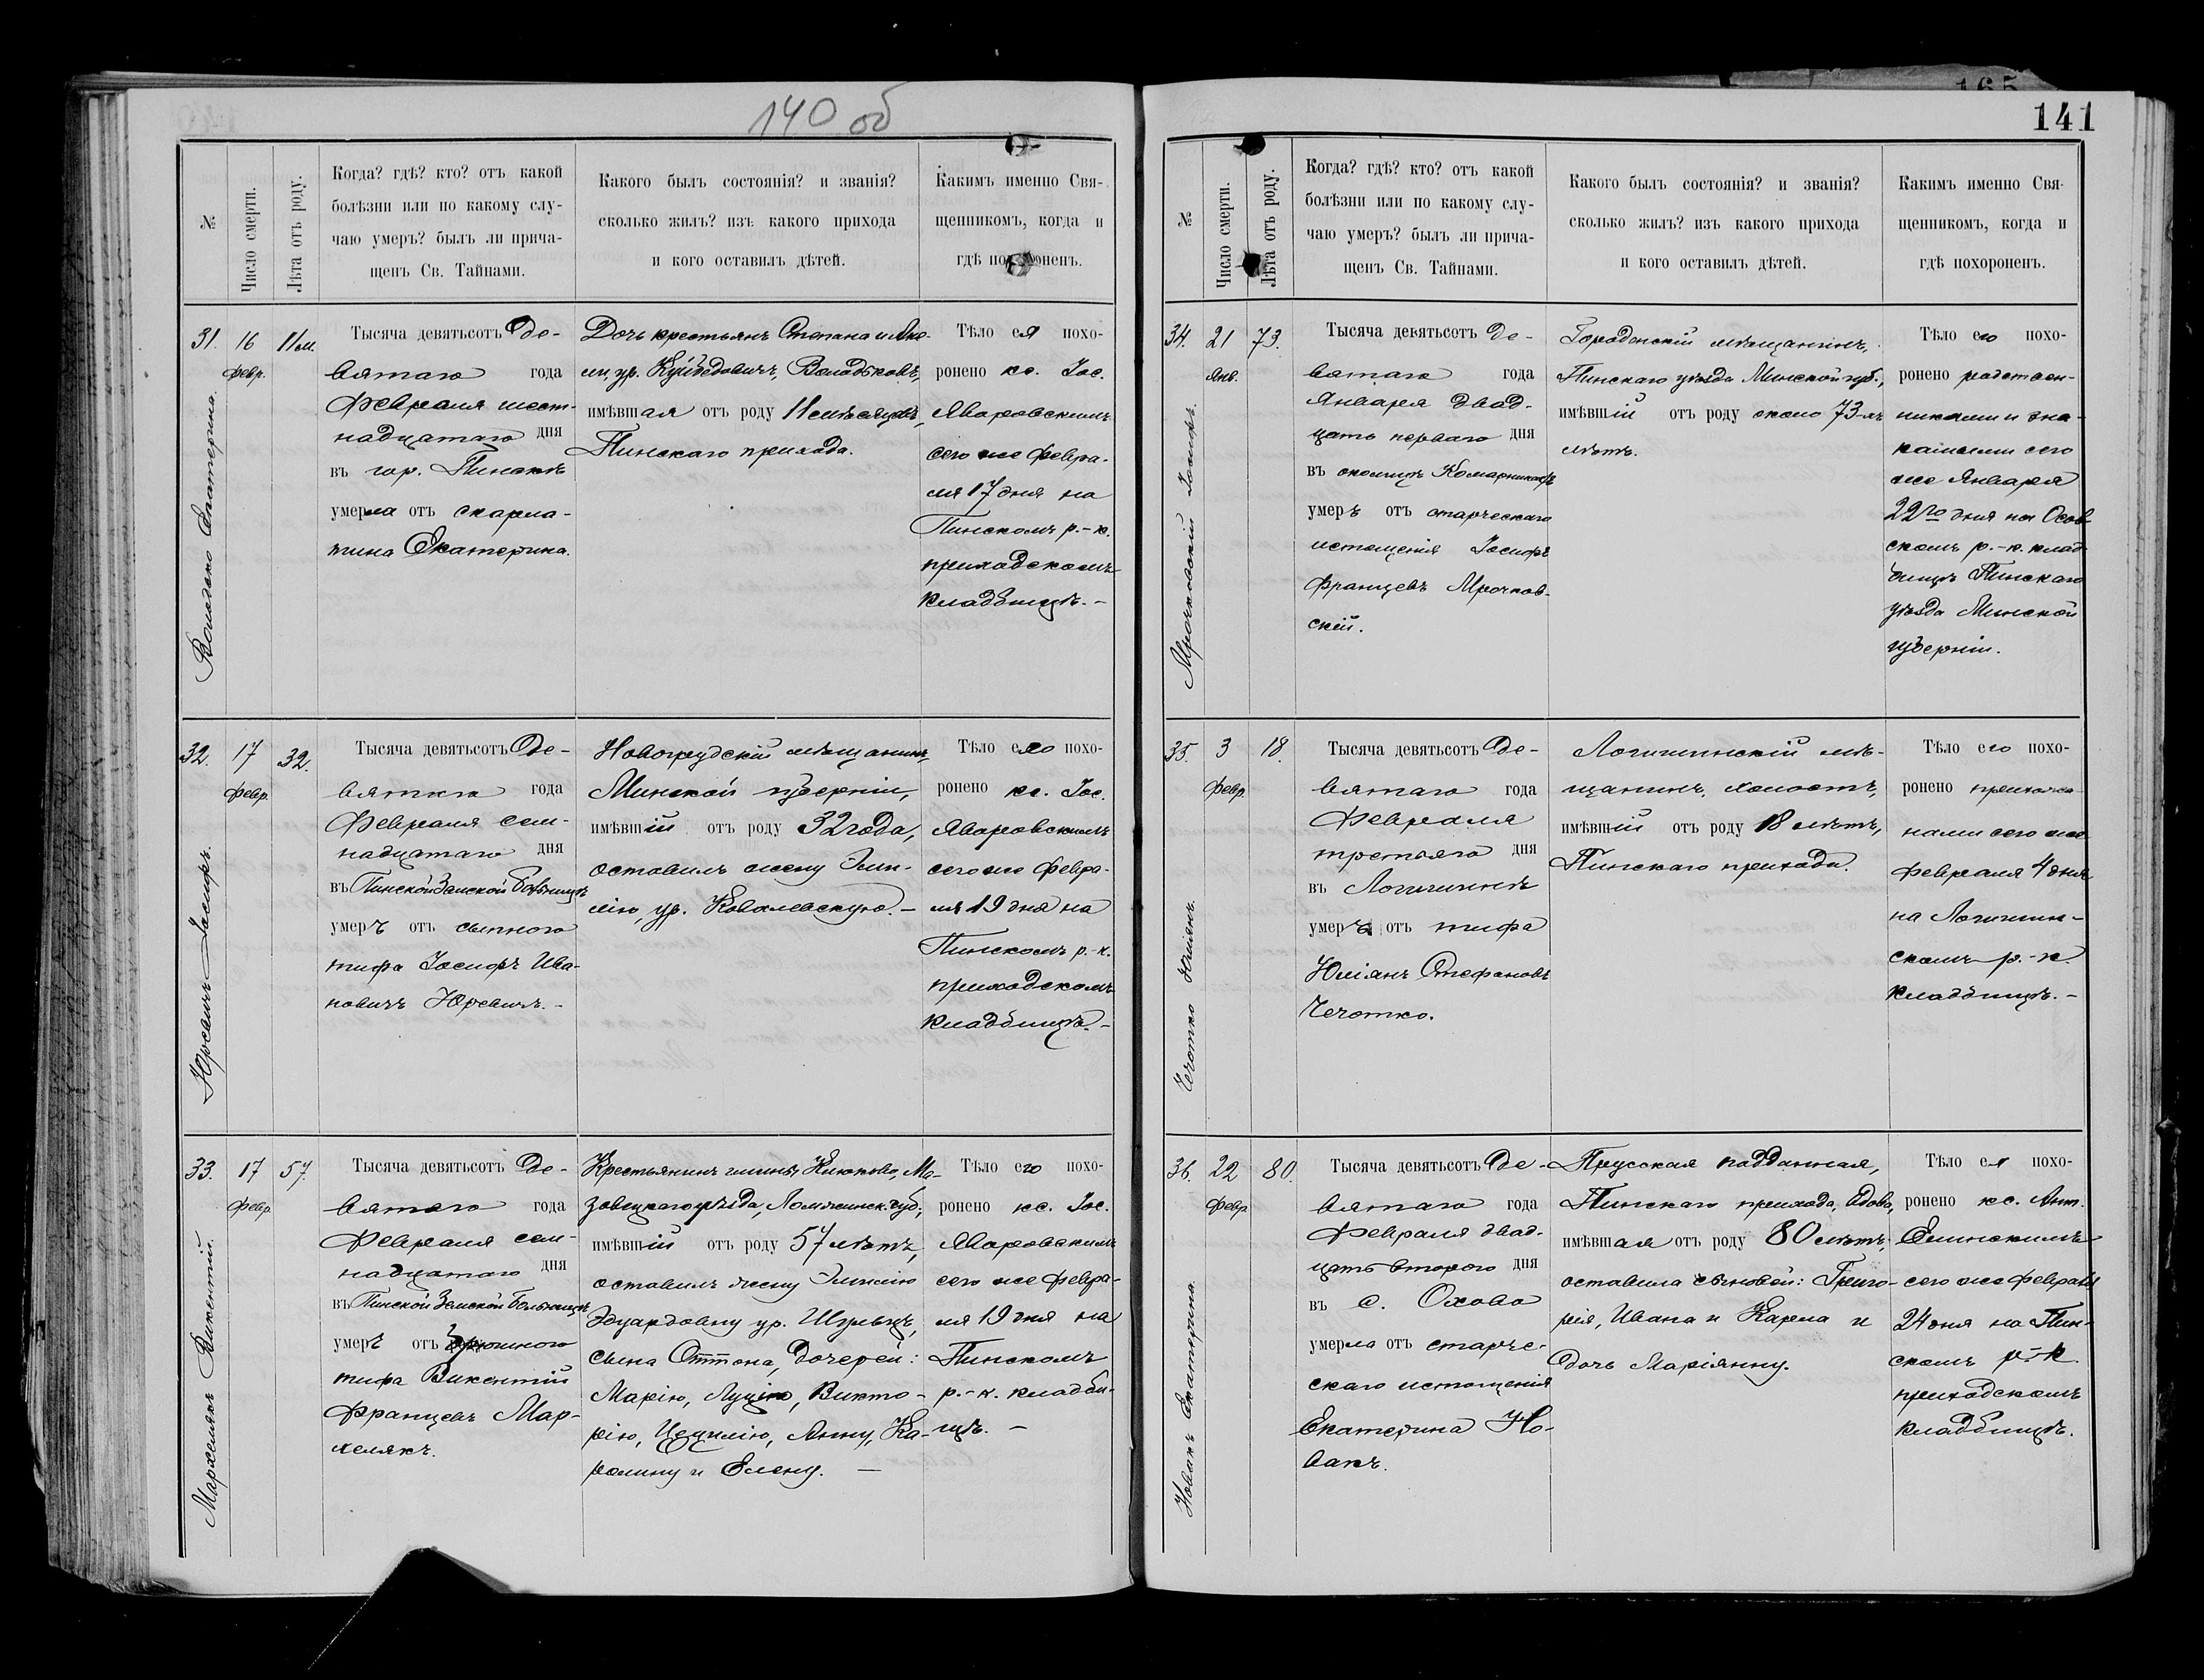 140 об
№
Число смерти.
Лѣта отъ роду.
Когда? гдѣ? кто? отъ какой
болѣзни или по какому слу-
чаю умеръ? былъ ли прича-
щенъ Св. Тайнами.
Какого былъ состоянія? и званія?
сколько жилъ? изъ какого прихода
и кого оставилъ дѣтей.
Какимъ именно Свя-
щенникомъ, когда и
гдѣ похороненъ.
31.
Екатерина.
16
Февр.
11 м.
Тысяча девятьсотъ де-
вятаго года
Февраля шест-
надцатаго дня
въ гор. Пинскѣ
умерла отъ скарла-
тина Екатерина.
Дочь крестьянъ Степана и
ур. Володько,
имѣвшая отъ роду 11 мѣсяцевъ,
Пинскаго прихода.
Тѣло ея похо-
ронено кс. Іос.
Яваровскимъ
сего же Февра-
ля 17 дня на
Пинскомъ р.-к.
приходскомъ
кладбищѣ.-
32.
Юревичъ Іосифъ.
17
Февр.
32.
Тысяча девятьсотъ де-
вятаго года
Февраля сем-
надцатаго дня
въ Пинской Земской больницѣ
умеръ отъ сыпного
тифа Іосифъ Ива-
новичъ Юревичъ.-
Новогрудскій мѣщанинъ,
Минской губерніи,
имѣвшій отъ роду 32 года,
оставилъ жену Эми-
лію, ур. Ковалевскую.-
Тѣло его похо-
ронено кс. Іос.
Яваровскимъ
сего же Февра-
ля 19 дня на
Пинскомъ р.-к.
приходскомъ
кладбищѣ.-
33.
Мархелякъ Викентій.
17
Февр.
57.
Тысяча девятьсотъ де-
вятаго года
Февраля сем-
надцатаго дня
въ Пинской Земской Больницѣ
умеръ отъ брюшного
тифа Викентій
Францевъ Мар-
хелякъ.
Крестьянинъ гмины Клюково, Ма-
зовецкаго уѣзда, Ломжинск. губ.,
имѣвшій отъ роду 57 лѣтъ,
оставилъ жену Эмилію
Эдуардовну ур. Шульцъ,
сына Оттона, дочерей:
Марію, Луцію, Викто-
рію, Цецилію, Анну, Ка-
ролину и Елену. —
Тѣло его похо-
ронено кс. Іос.
Яваровскимъ
сего же Февра-
ля 19 дня на
Пинскомъ
р.-к. кладби-
щѣ. —
165
141
№
Число смерти.
Лѣта отъ роду.
Когда? гдѣ? кто? отъ какой
болѣзни или по какому слу-
чаю умеръ? былъ ли прича-
щенъ Св. Тайнами.
Какого былъ состоянія? и званія?
сколько жилъ? изъ какого прихода
и кого оставилъ дѣтей.
Какимъ именно Свя-
щенникомъ, когда и
гдѣ похороненъ.
34.
Мрочковскій Іосифъ.
21
Янв.
73.
Тысяча девятьсотъ де-
вятаго года
Января двад-
цать перваго дня
въ околицѣ
умеръ отъ старческаго
истощенія Іосифъ
Францевъ Мрочков-
скій.
Городенскій мѣщанинъ,
Пинскаго уѣзда Минской губ.,
имѣвшій отъ роду около 73-хъ
лѣтъ.
Тѣло его похо-
ронено родствен-
никами и зна-
комыми сего
же Января
22го дня на Осов-
скомъ р.-к. клад-
бищѣ Пинскаго
уѣзда Минской
губерніи.
35.
Чечотко Юліянъ.
3
Февр.
18.
Тысяча девятьсотъ де-
вятаго года
Февраля
третьяго дня
въ Логишинѣ
умеръ отъ тифа
Юліянъ Стефановъ
Чечотко.
Логишинскій мѣ-
щанинъ, холостъ,
имѣвшій отъ роду 18 лѣтъ,
Пинскаго прихода.
Тѣло его похо-
ронено прихожа-
нами сего же
Февраля 4 дня
на Логишин-
скомъ р.-к.
кладбищѣ.-
36.
Новакъ Екатерина.
22
Февр
80.
Тысяча девятьсотъ де-
вятаго года
Февраля двад-
цать второго дня
въ с. Охово
умерла отъ старче-
скаго истощенія
Екатерина Но-
вакъ.
Прусская подданная,
Пинскаго прихода, вдова,
имѣвшая отъ роду 80 лѣтъ,
оставила сыновей: Григо-
рія, Ивана и Карла и
дочь Маріянну.
Тѣло ея похо-
ронено кс. Ант.
сего же Февраля
24 дня на Пин-
скомъ р.-к.
приходскомъ
кладбищѣ.